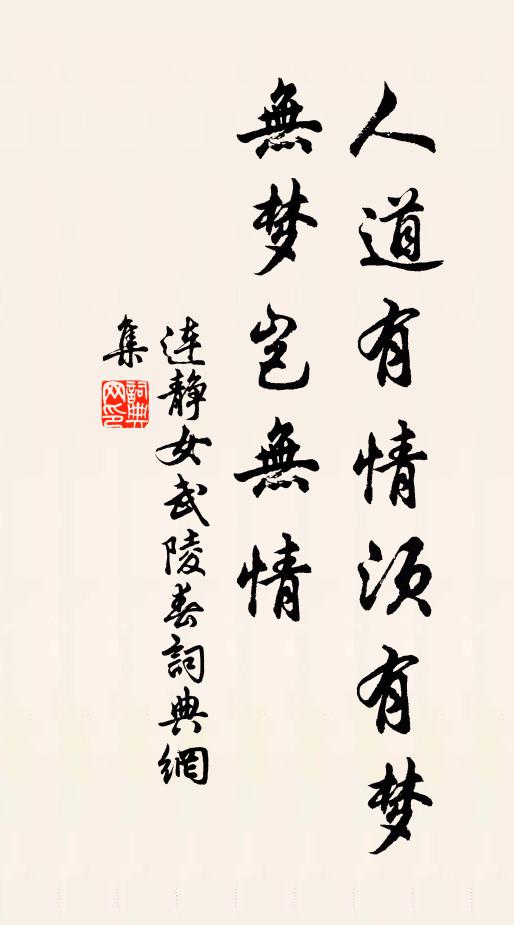 人道有情須有梦
無梦岂無情
连静女武陵春詞典網
集
詞典
网印